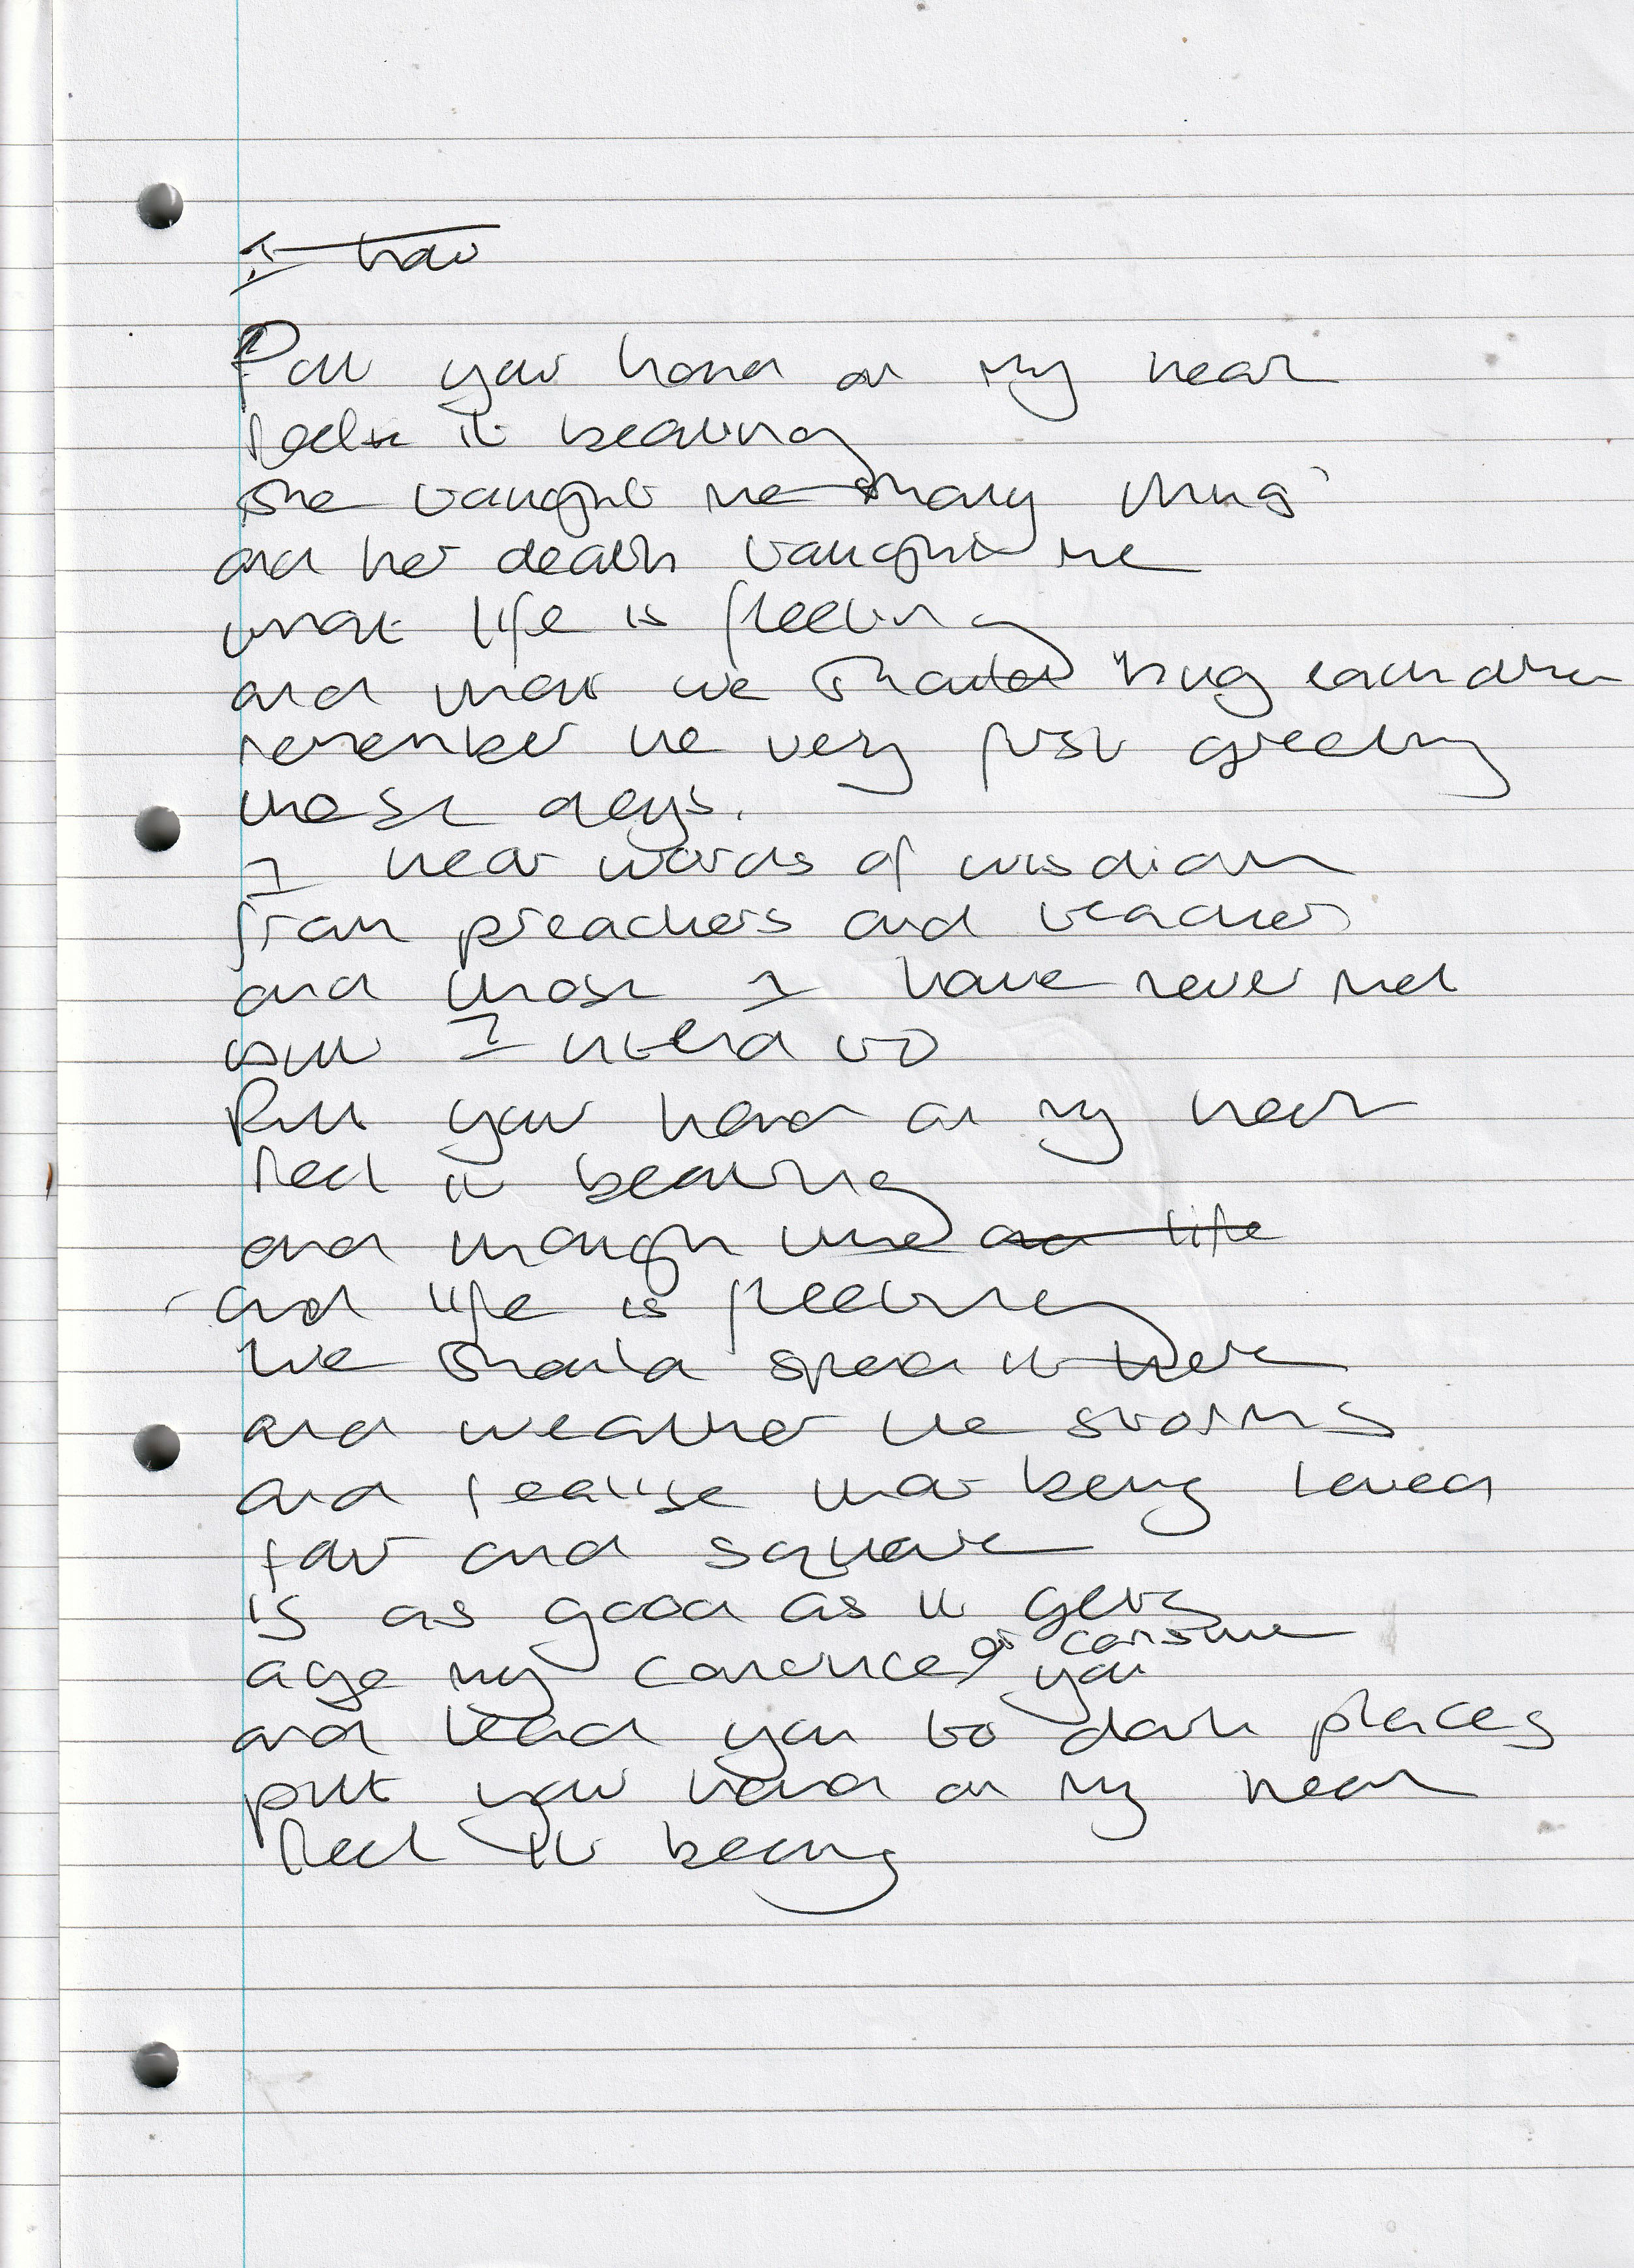 Put your hand on my heart
feel it beating
She taught me many things
and her death taught me
that life is fleeting
and that we should hug each other
remember the very first greeting
those days.
I hear words of wisdom
from preachers and teachers
and those I have never met
but I intend to
Put your hand on my heart
feel it beating
and though time
and life is fleeting
We should spend it here
and weather the storms
and realise that being loved
fair and square
is as good as it gets
age my consume
you
and lead you to dark places
put your hand on my heart
feel it beating